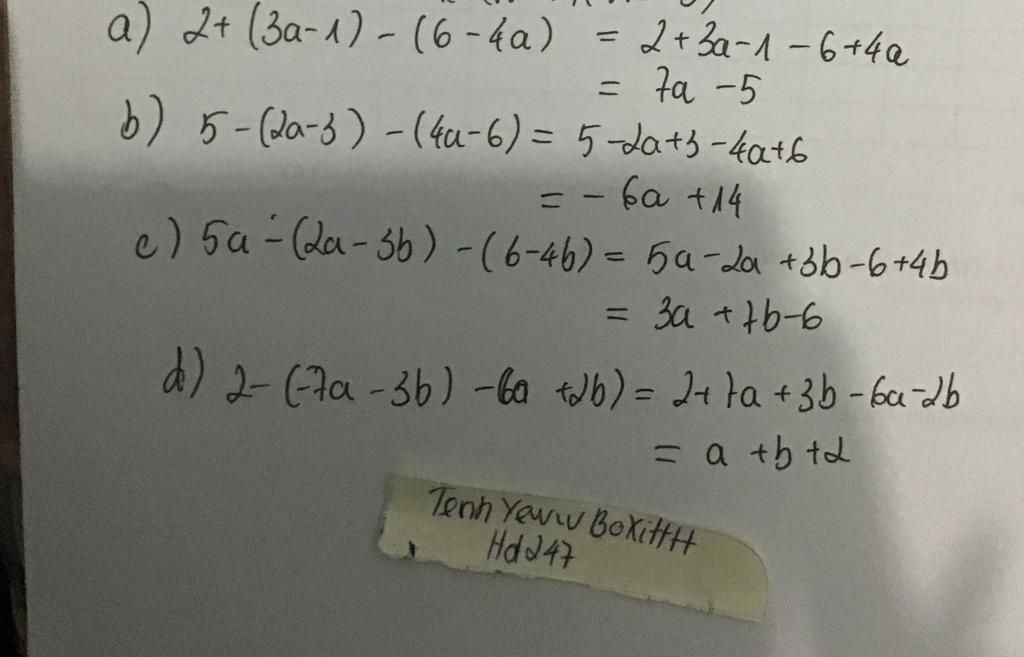 a) 2+ (3a-1) - (6 - 4a) = 2+3a-1-6+4a
= 7a - 5
b) 5 -(2a-3) - (4a-6) = 5-2a+3-4a+6
= - 6a +14
c) 5a - (2a - 3b) - (6-4b) = 5a-2a +3b-6+4b
= 3a +7b-6
d) 2- (-7a - 3b) - 6a +2b) = 2+7a+3b-6a-2b
= a +b+2
Hd247